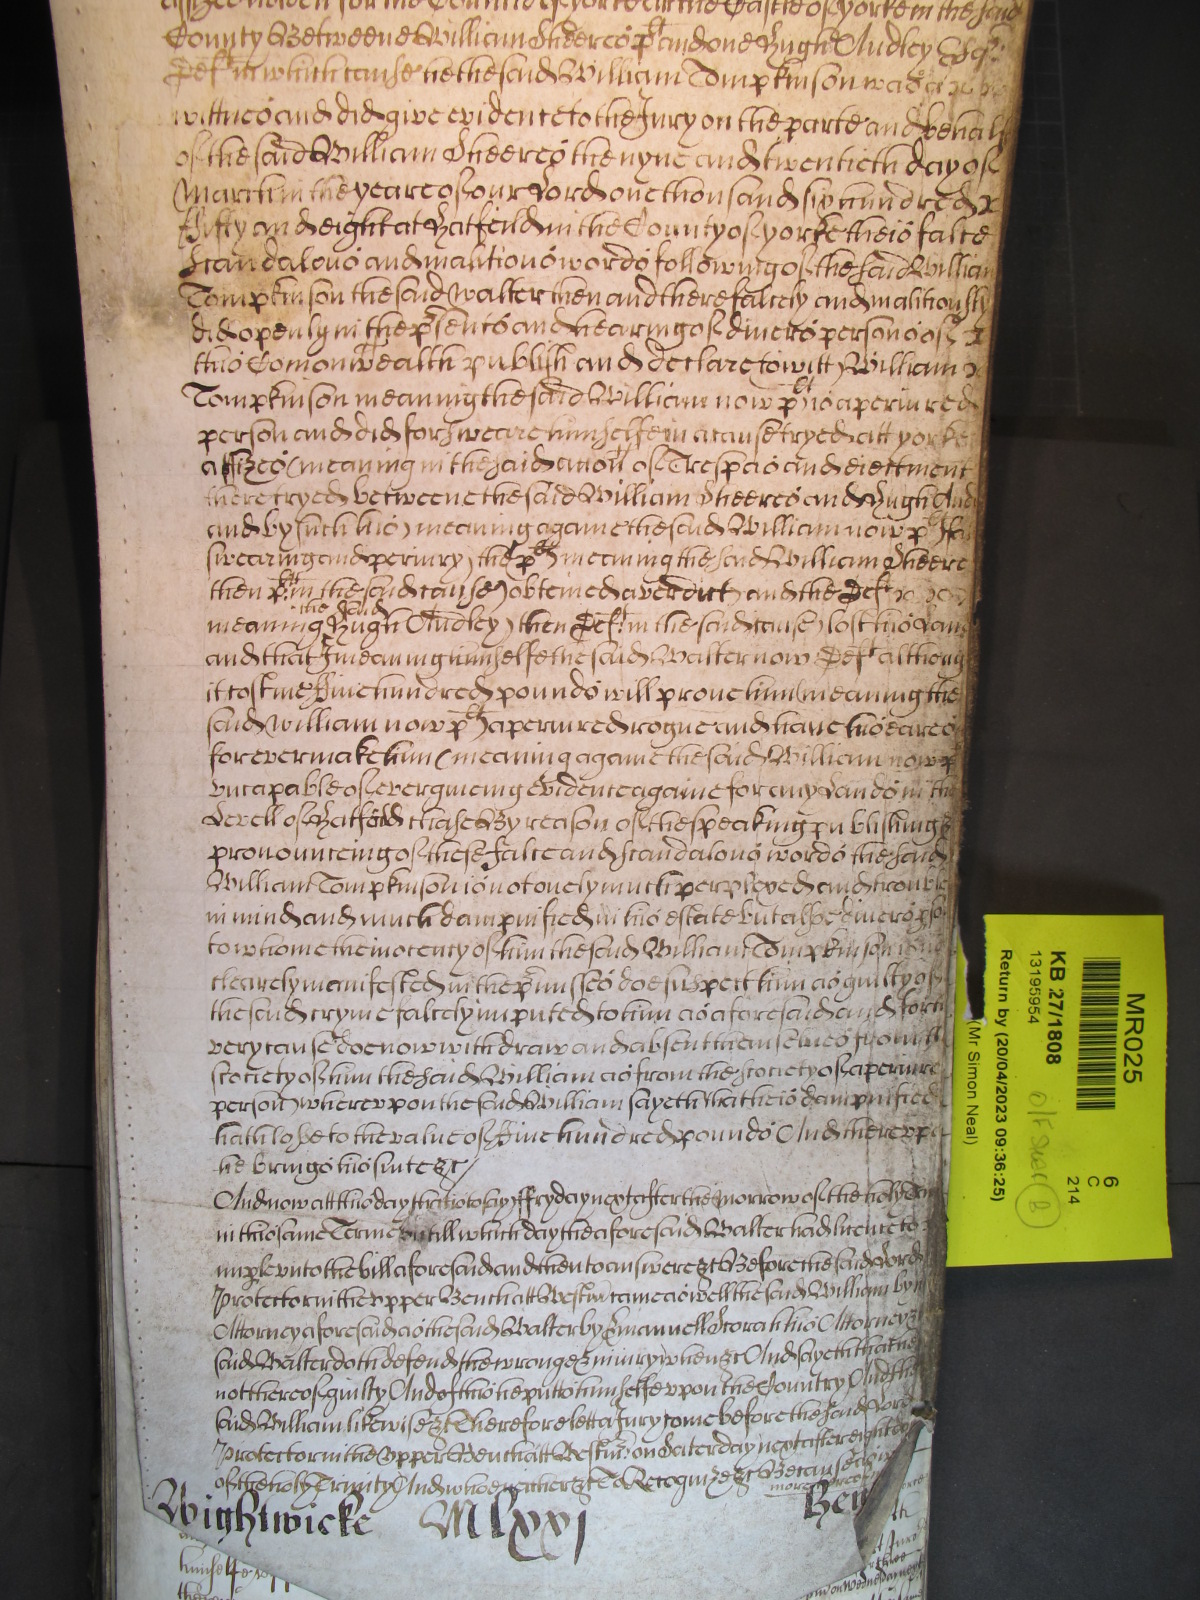 assizes holden for the County of yorke att the Castle of yorke in the said
County Betweene William Sheeres plt and one Hugh Audley Esqr
Deft in which cause he the said William Tompkinson was a
wittnes and did give evidence to the Jury on the parte and behalfe
of the said William Sheeres the nyne and twentieth day of
March in the yeare of our Lord one thousand six hundred
fifty and eight at Hatfeild in the County of yorke theis false
scandalous and malitious words following of the said William
Tompkinson the said Walter then and there falcely and malitiously
did openly in the p'sence and hearing of divers persons of
this Comonwealth publish and declare (to witt) William
Tompkinson meaning the said William now plt is a periured
person and did forsweare himselfe in a cause tryed att yorke
assizes (meaning in the said action of Trespas and eiectment
there tryed betweene the said William Sheeres and Hugh Aud
and by such his) meaning againe the said William now plts
swearing and periury) the plt) meaning the said William Sheere
then plt in the said cause) obteined a verdict and the Deft
meaning the said Hugh Audley) then Deft in the said cause) lost his Land
and that I meaning himselfe the said Walter now Deft although
it cost me ffive hundred pounds will prove him (meaning the
said William now plt) a periured rogue and have his eares
forever make him (meaning againe the said William now p
uncapable of ever giveing evidence againe for any Lands in the
Levell of Hatfeild chase By reason of the speaking publishing &
pronounceing of these false and scandalous words the said
William Tompkinson is not onely much perplexed and trouble
in mind and much dampnified in his estate but alsoe divers p'sons
to whome the inocency of him the said William Tompkinson
clearely manifested in the p'misses doe suspect him as guilty of
the said cryme falcely imputed to him as aforesaid and for th
very cause doe now withdraw and absent themselves from the
society of him the said William as from the society of a periured
person) whereupon the said William sayeth that he is dampnified
hath losse to the value of ffive hundred pounds And thereupon
he brings his suite &c/
And now att this day that is to say ffryday next after the morrow of the holy
in this same Terme untill which day the aforesaid Walter had licence to
imple unto the bill aforesaid and then to answere &c Before the said Lord
Protector in the upper Bench att Westm' came aswell the said William by
Attorney aforesaid as the said Walter by Emanuell his Attorney &
said Walter doth defend the wronge & iniury when &c And sayeth that he
not thereof guilty And of this he putts himselfe upon the Country And the
said William likewise &c Therefore lett a Jury come before the said Lord
Protector in the Upper Bench att Westm' on Saterday next after eight
of the holy Trinity And who neither &c To Recognize &c Because aswell
Wightwicke Mlxxj
himselfe
MR025
KB 27/1808
13195954
6
C
214
Return by (20/04/2023 09:36:25)
(Mr Simon Neal)